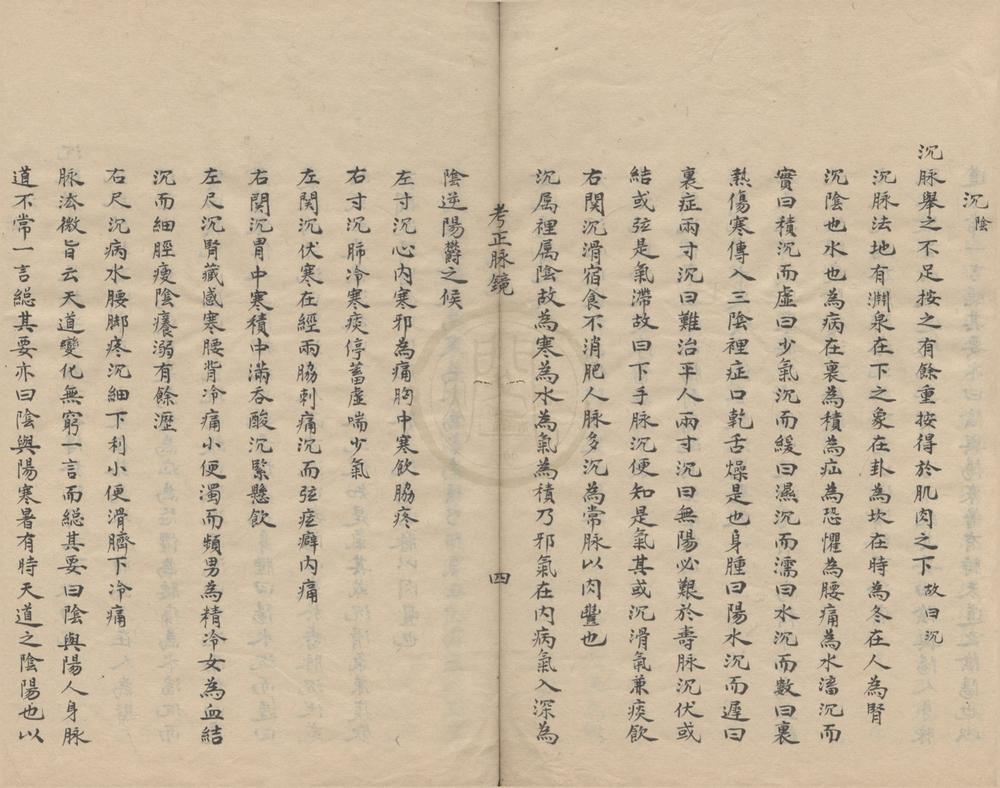 沉 陰
沉脉舉之不足按之有餘重按得於肌肉之下故曰沉
沉脉法地有淵泉在下之象在卦為坎在時為冬在人為腎
沉陰也水也為病在裏為積為疝為恐懼為腰痛為水濇沉而
實曰積沉而虛曰少氣沉而緩曰濕沉而濡曰水沉而數曰裏
熱傷寒傳入三陰裡症口乾舌燥是也身腫曰陽水沉而遲曰
裏症兩寸沉曰難治平人兩寸沉曰無陽必艱於壽脉沉伏或
結或弦是氣滯故曰下手脉沉便知是氣其或沉滑氣兼痰飲
右関沉滑宿食不消肥人脉多沉為常脉以肉豐也
沉属裡属陰故為寒為水為氣為積乃邪氣在内病氣入深為
考正脉鏡 四
陰逆陽欝之候
左寸沉心内寒邪為痛胸中寒飲脇疼
右寸沉肺冷寒痰停蓄虛喘少氣
左関沉伏寒在經兩脇刺痛沉而弦痃癖内痛
右関沉胃中寒積中滿吞酸沉緊懸飲
左尺沉腎藏感寒腰背冷痛小便濁而頻男為精冷女為血結
沉而細脛痠陰癢溺有餘瀝
右尺沉病水腰脚疼沉細下利小便滑臍下冷痛
脉𣳴微旨云天道變化無窮一言而総其要曰陰與陽人身脉
道不常一言総其要亦曰陰與陽寒暑有時天道之陰陽也以